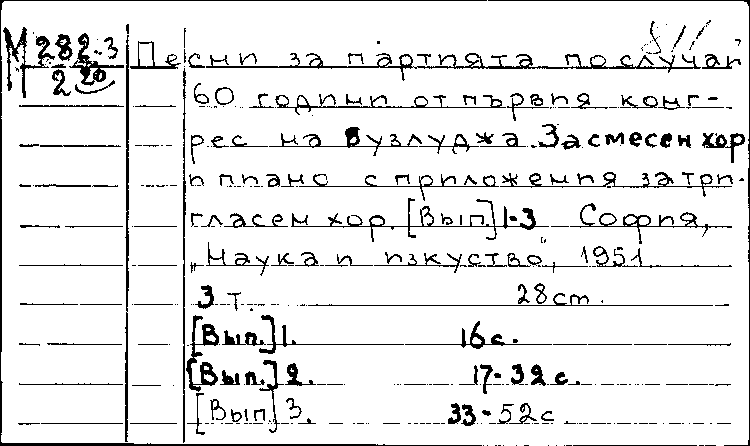 811
М 282-3
2 20
Песни за партията по случай
60 години от първия конг-
рес на Бузлуджа. За смесен хор
и пиано с приложения за три-
гласен хор. [Вып.] 1-3 София,
„Наука и изкуство", 1951.
3 т. 28 cm.
[Вып.] 1. 16 с.
[Вып.] 2. 17-32 с.
[Вып.] 3. 33-52 с.